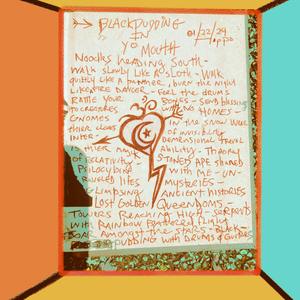 BLACKPUDDING
IN
YO MOUTH
01/22/24
NOODLES HEADING SOUTH -
WALK SLOWLY LIKE A SLOTH - WALK
QUICKLY LIKE A PANTHER, BURN THE NIGHT
LIKE A FIRE DANCER - FEEL THE DRUMS
RATTLE YOUR BONES - SEND BLESSINGS
TO CREATURES HOMES -
GNOMES IN THE SNOW WEAR
THIER CLOAKS OF INVISIBILITY
INTER - DIMENSIONAL TRAVEL
IS THIER MASK ABILITY - THEORY
OF RELATIVITY - STONED APE SHARED
PSILOCYBIN WITH ME - UN-
RAVELED LIFES MYSTERIES -
GLIMPSING ANCIENT HISTORIES
LOST GOLDEN QUEENDOMS -
TOWERS REACHING HIGH - SERPENTS
WITH RAINBOW FEATHERED FLIGHT
SOAR AMONGST THE STAIRS - BLACK-
PUDDING WITH DRUMS & GUITARS